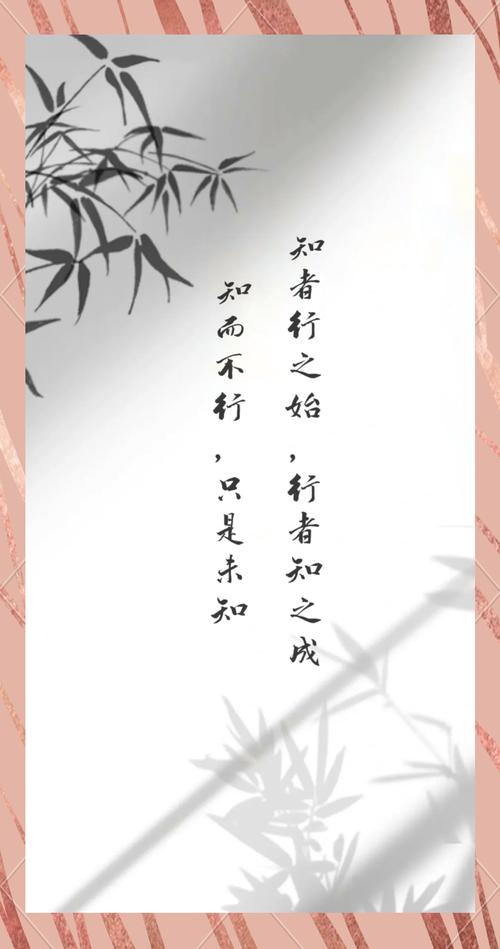 知者行之始，行者知之成
知而不行，只是未知